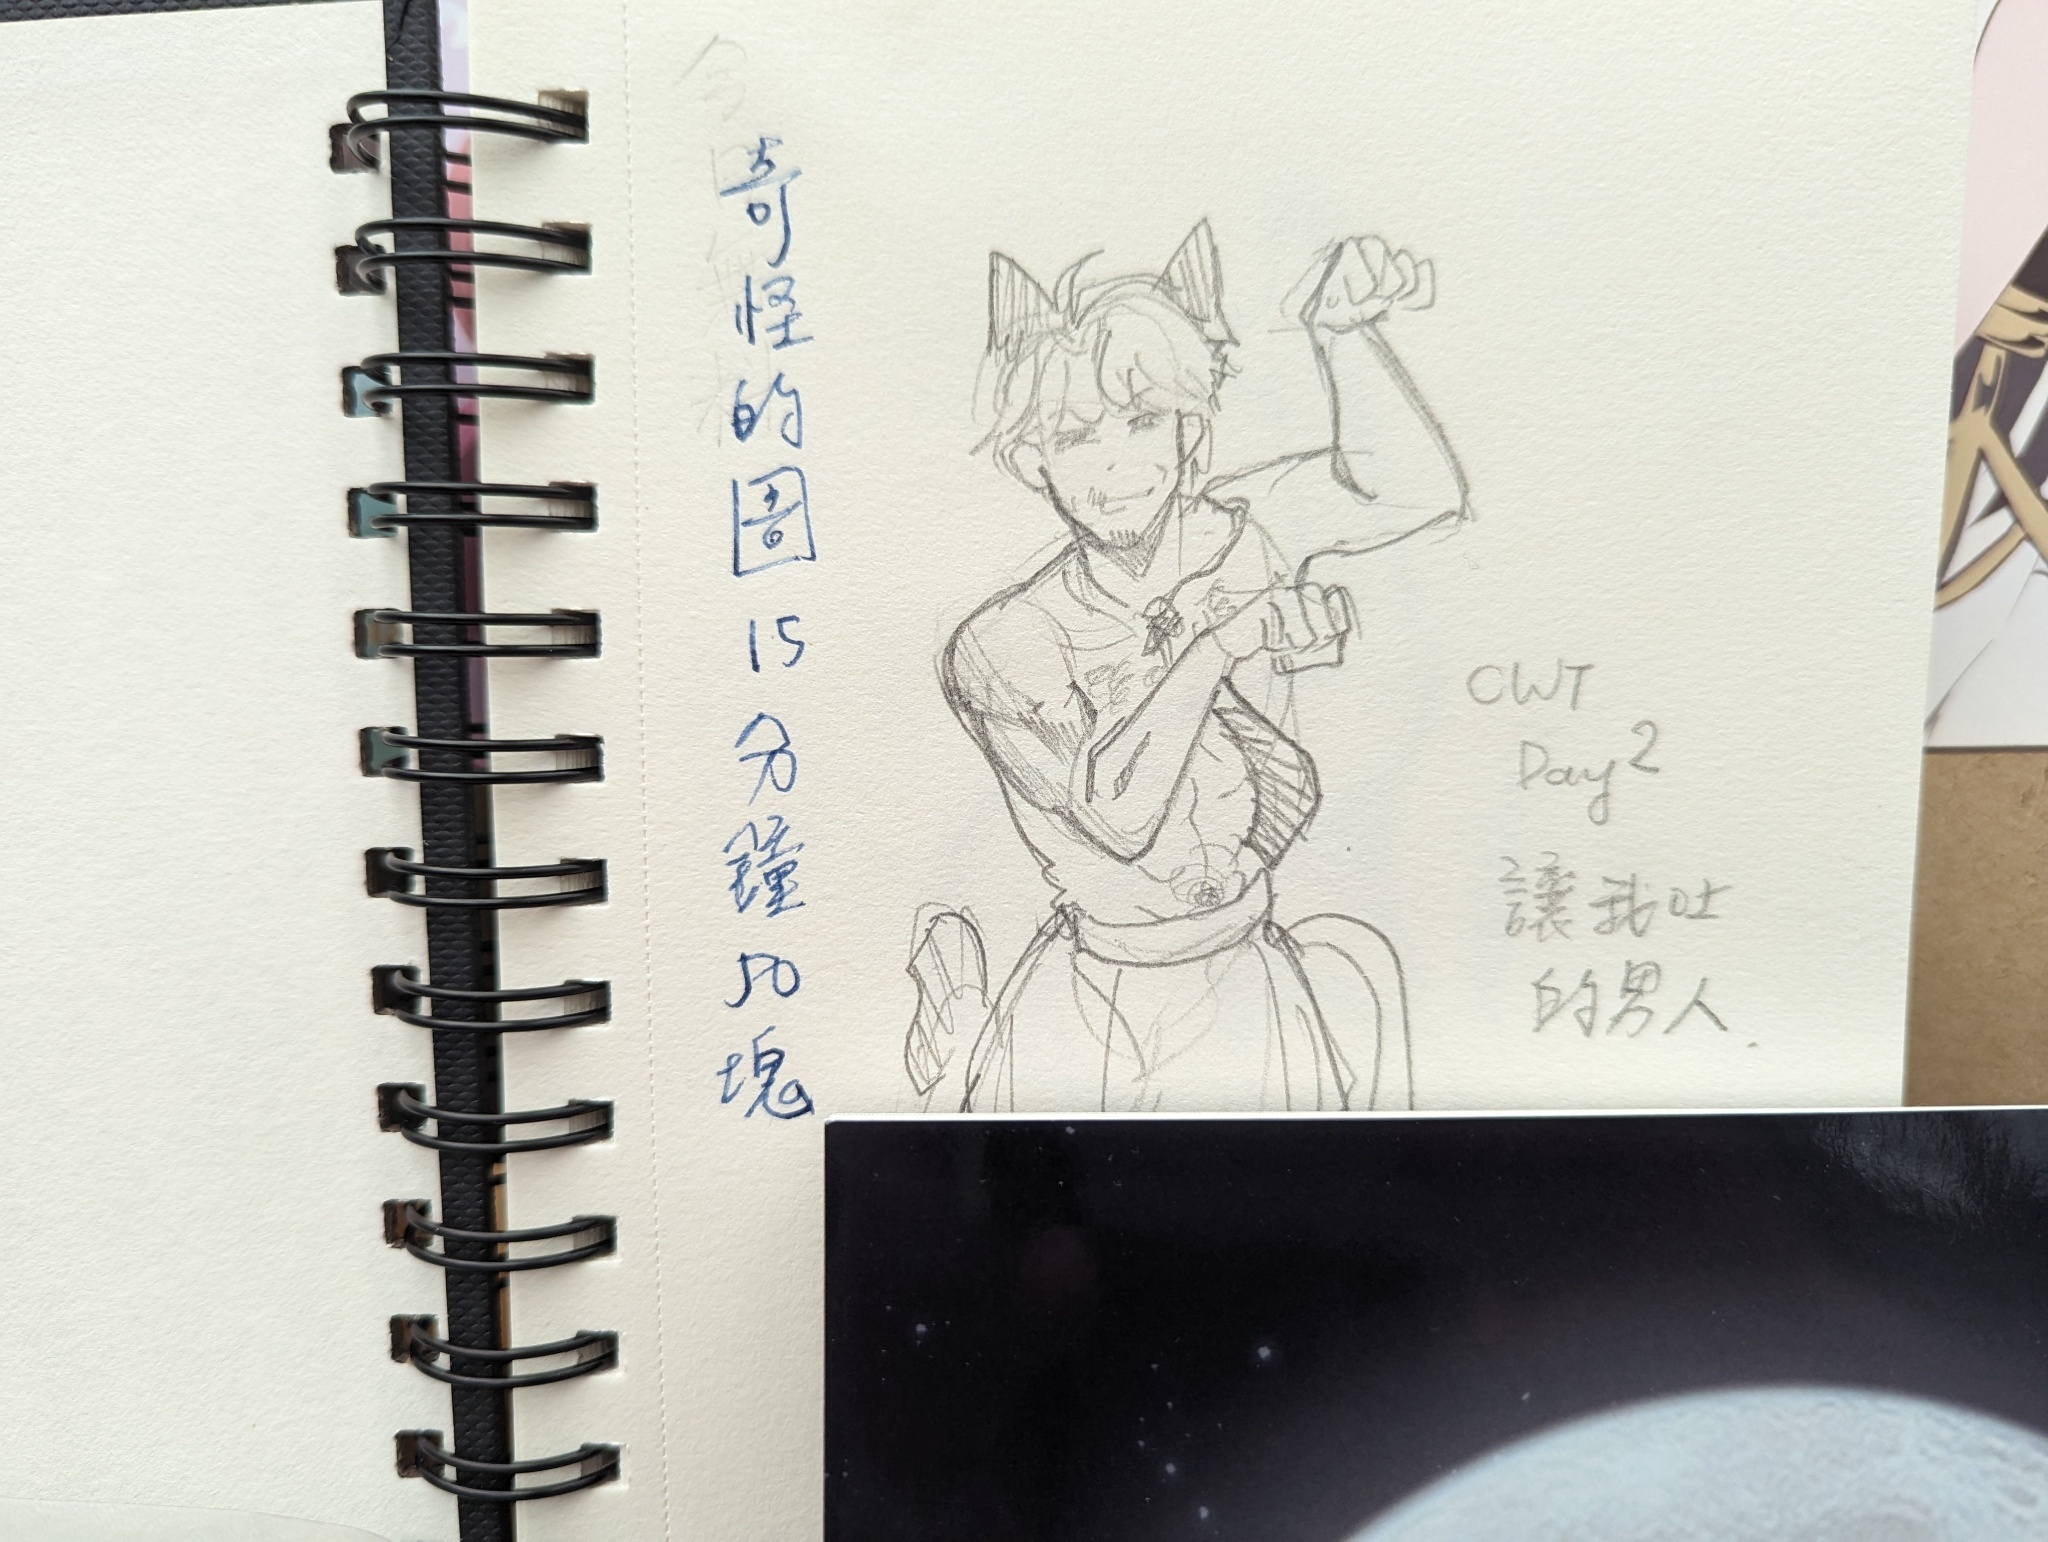 奇怪的圖 15 分鐘 50 塊
CWT
Day 2
讓我吐
的男人.